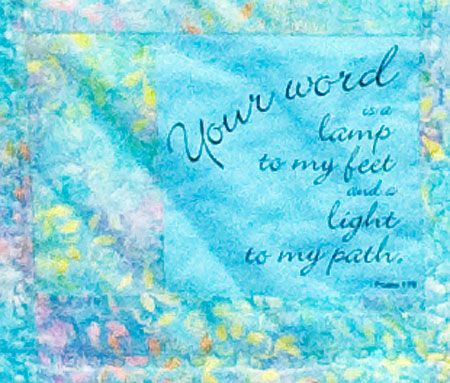 Your word
is a
lamp
to my feet
and a
light
to my path.
Psalm